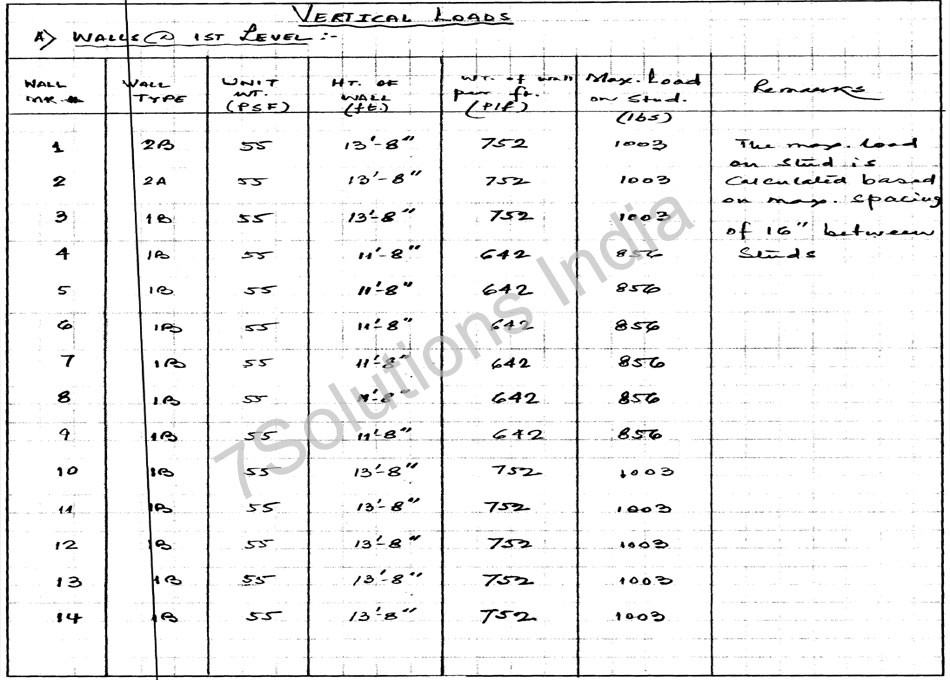 VERTICAL LOADS
A) WALLS @ 1ST LEVEL :-
WALL MK. # WALL TYPE UNIT WT. (PSF) HT. OF WALL (ft.) WT. of wall per ft. (Plf) Max. Load on Stud. (lbs) Remarks
1 2B 55 13'-8" 752 1003 The max. load
on stud is
2 2A 55 13'-8" 752 1003 Calculated based
on max. spacing
3 1B 55 13'-8" 752 1003
of 16" between
4 1B 55 11'-8" 642 856 Studs
5 1B 55 11'-8" 642 856
6 1B 55 11'-8" 642 856
7 1B 55 11'-8" 642 856
8 1B 55 11'-8" 642 856
9 1B 55 11'-8" 642 856
10 1B 55 13'-8" 752 1003
11 1B 55 13'-8" 752 1003
12 1B 55 13'-8" 752 1003
13 1B 55 13'-8" 752 1003
14 1B 55 13'-8" 752 1003
7Solutions India